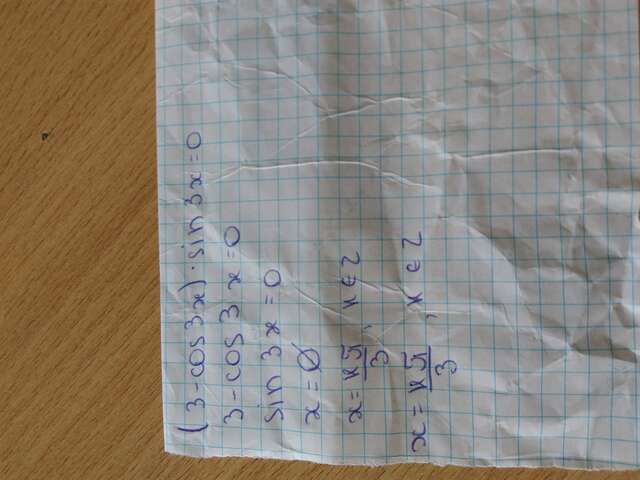 (3-cos3x)·sin3x=0
3-cos3x=0
sin3x=0
x=∅
x=kπ/3, k∈Z
x=kπ/3, k∈Z